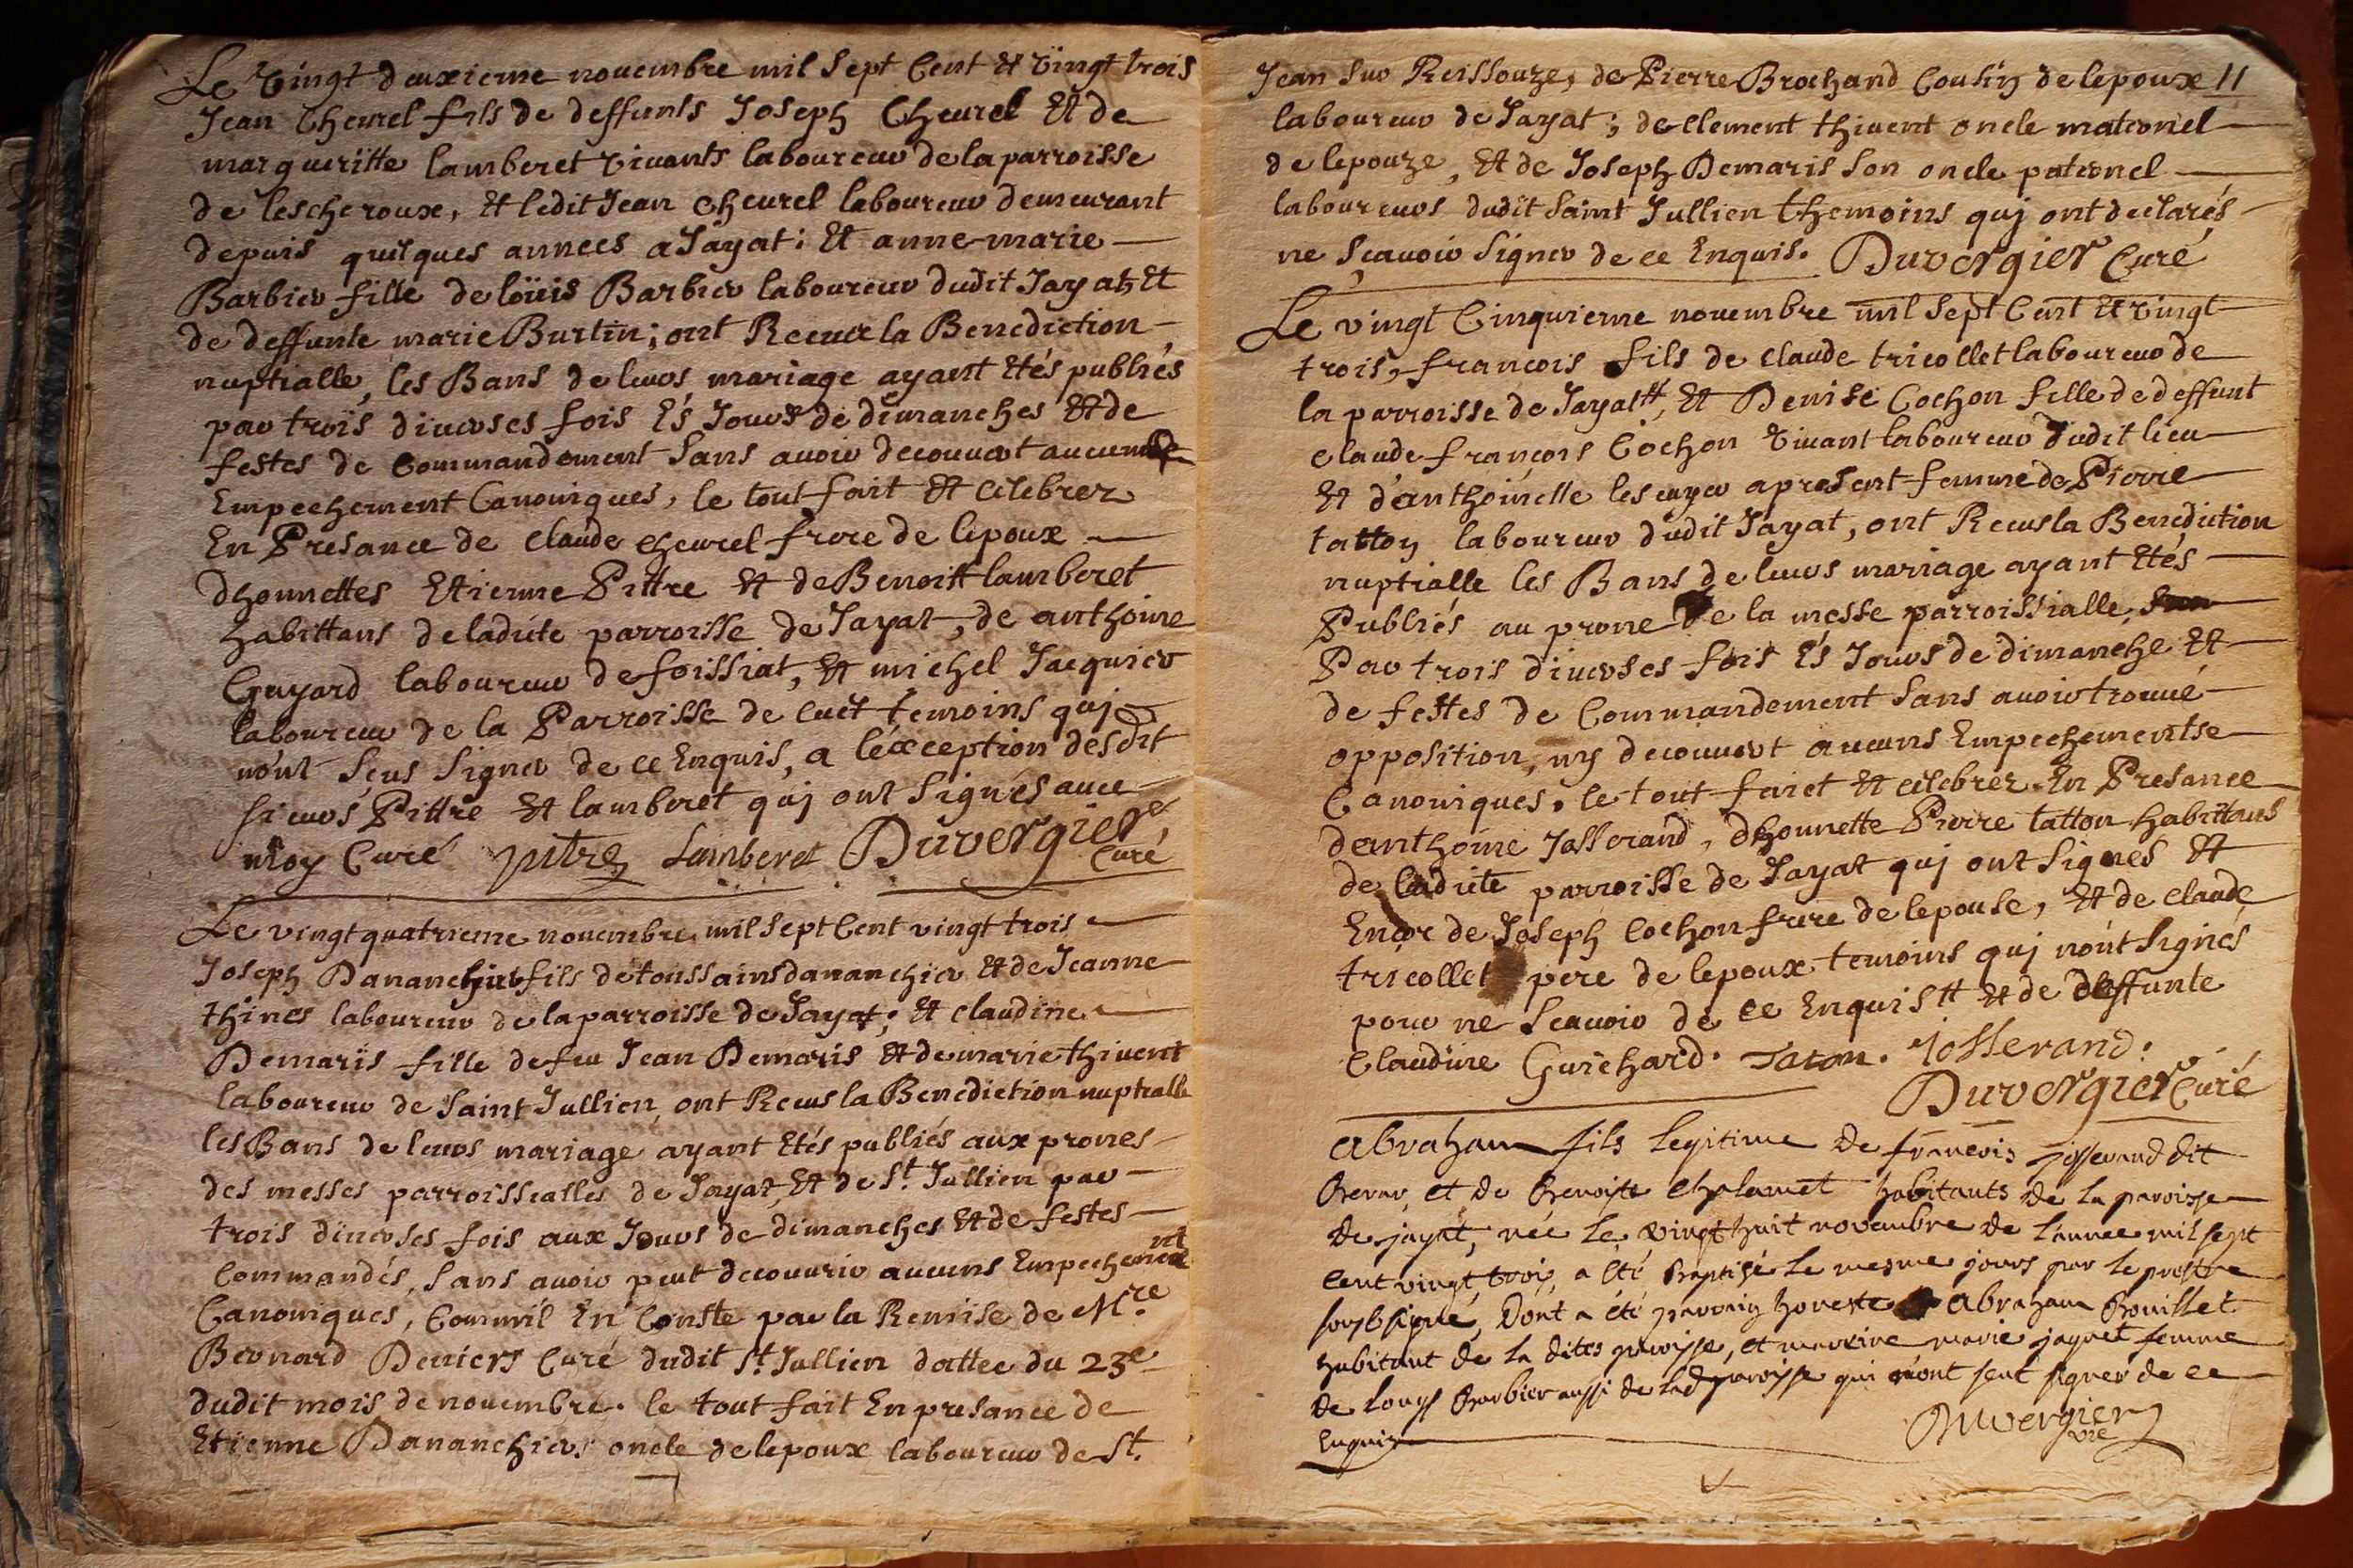 Le vingt deuxieme nouembre mil sept Cent et vingt trois
Jean Cheurel fils de deffunts Joseph Cheurel Et de
margueritte lamberet viuants laboureur de la parroisse
de lescheroux, Et ledit Jean Cheurel laboureur demeurant
depuis quelques annees a Jayat; Et anne-marie
Barbier fille de loüis Barbier laboureur dudit Jayat Et
de deffunte marie Burtin; ont Receu la Benediction
nuptialle, les Bans de leurs mariage ayant Etés publiés
par trois diuerses fois Es Jours de dimanches Et de
festes de Commandement sans auoir decouuert aucun
Empechement Canoniques, le tout fait Et Celebrez
En Presance de Claude Cheurel frere de lepoux
dhonnettes Etienne Pittre Et de Benoitt lamberet
habittans de ladite parroisse de Jayat, de anthoine
Guyard laboureur de foissiat, Et michel Jacquier
laboureur de la Parroisse de Cuet temoins quj
nont sçus signer de ce Enquis, a léxception desdit
sieurs Pittre Et lamberet quj ont signés auec
moy Curé pitre Lamberet Duvergier, Curé
Le vingt quatrieme nouembre mil sept Cent vingt trois
Joseph Dananchier fils de toussains dananchier Et de Jeanne
thines laboureur de la parroisse de Jayat; Et Claudine
Demaris fille de feu Jean Demaris Et de marie thiuent
laboureur de Saint Jullien, ont Recus la Benediction nuptialle
les Bans de leurs mariage ayant Etés publiés aux prones
des messes parroissialles de Jayat, Et de St. Jullien par
trois diuerses fois aux Jours de dimanches Et de festes
Commandés, sans auoir peut decouurir aucuns Empechement
Canoniques, Commil En Conste par la Remise de Mre.
Bernard Deniers Curé dudit St. Jullien dattee du 23e
dudit mois de nouembre. le tout fait En presance de
Etienne Dananchier oncle de lepoux laboureur de St.
Jean sur Reissouze, de Pierre Brochand Cousin de lepoux 11
laboureur de Jayat; de Clement thiuent oncle maternel
de lepouze, Et de Joseph Demaris son oncle paternel
laboureurs dudit Saint Jullien themoins quj ont declarés
ne sçauoir signer de ce Enquis. Duvergier Curé
Le vingt Cinquieme nouembre mil sept Cent Et vingt
trois, francois fils de Claude tricollet laboureur de
la parroisse de Jayat tt, Et Denise Cochon fille de deffunt
Claude françois Cochon viuant laboureur dudit lieu
Et d'anthoinette lescuyer apresent femme de Pierre
tatton laboureur dudit Jayat, ont Recus la Benediction
nuptialle les Bans de leurs mariage ayant Etés
Publiés au prone de la messe parroissialle,
Par trois diuerses fois Es Jours de dimanche Et
de festes de Commandement sans auoir trouué
opposition, ny decouuert aucuns Empechements
Canoniques, le tout faict Et Celebrez En Presance
danthoine Josserand, dhonnette Pierre tatton habittans
de ladite parroisse de Jayat quj ont signes Et
Encor de Joseph Cochon frere de lepouse, Et de Claude
tricollet pere de lepoux temoins quj nont signés
pour ne sçauoir de ce Enquis tt Et de deffunte
Claudine Guichard. Taton. Josserand.
Duvergier Curé
abraham fils legitime de francois josserand dit
Berar, et de Benoiste Chalamet habitants de la paroisse
de jayat, née le vingt huit novembre de l'annee mil sept
cent vingt trois, a été Baptisé le mesme jours par le prestre
soubsigné, Dont a été parrain honeste abraham Bouillet
habitant de la dites paroisse, et mareine marie jaquet femme
de Louys Barbier aussi de lad paroisse qui n'ont seut signer de ce
Enquis Duvergier
vre